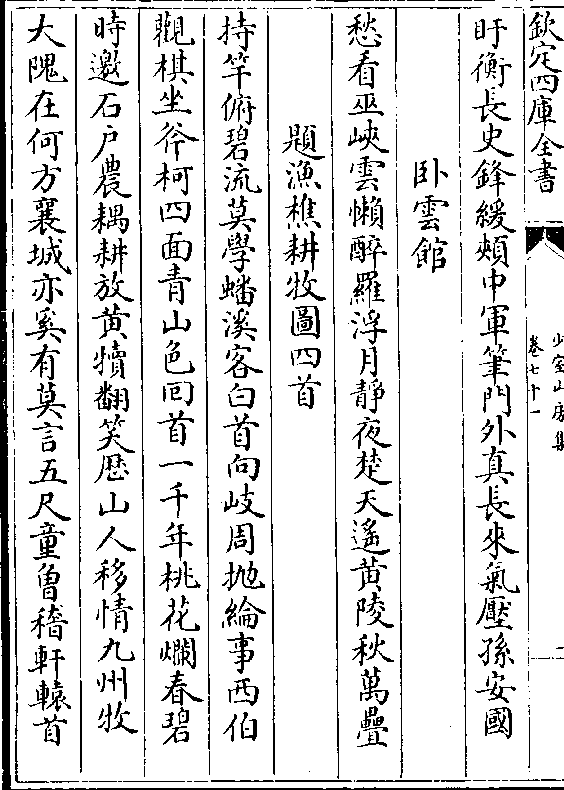 欽定四庫全書
少室山房集
卷七十一
二
盱衡長史鋒緩頰中軍筆門外真長來氣壓孫安國
卧雲館
愁看巫峽雲懶醉羅浮月靜夜楚天遙黃陵秋萬疊
題漁樵耕牧圖四首
持竿俯碧流莫學蟠溪客白首向岐周拋綸事西伯
觀棋坐斧柯四面青山色回首一千年桃花爛春碧
時邀石户農耦耕放黃犢翻笑歴山人移情九州牧
大隗在何方襄城亦奚有莫言五尺童曽稽軒轅首